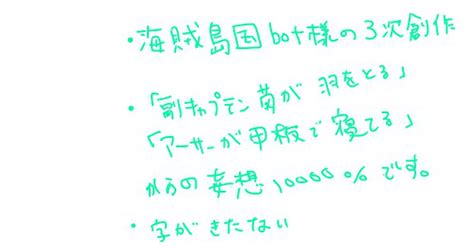 ・海賊島国bot様の3次創作
・「副キャプテン菊が羽をとる」
「アーサーが甲板で寝てる」
からの妄想10000%です。
・字がきたない